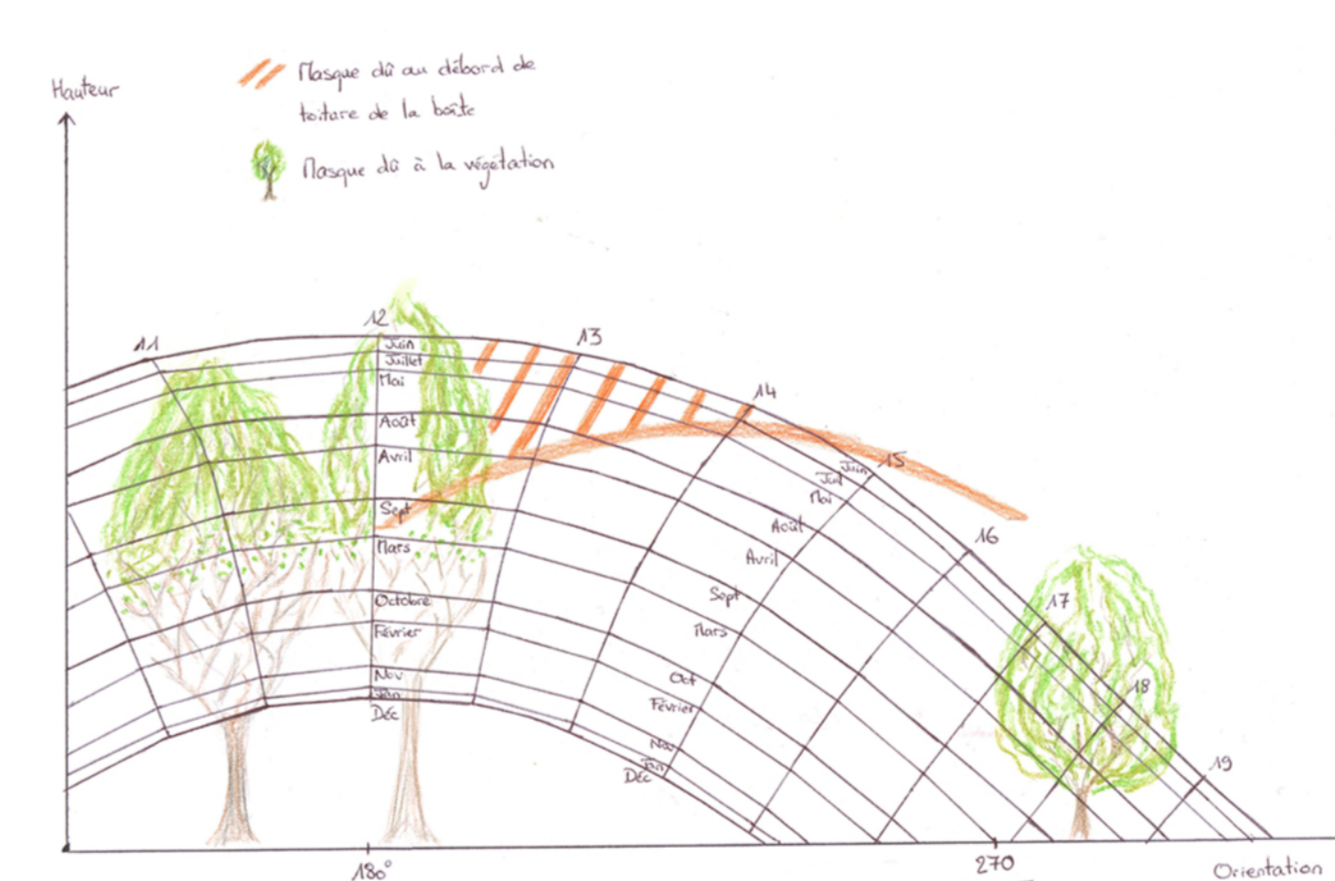 Hauteur
Masque dû au débord de
toiture de la boîte
Masque dû à la végétation
11
12
13
14
15
16
17
18
19
Juin
Juillet
Mai
Août
Avril
Sept
Mars
Octobre
Février
Nov
Jan
Déc
Juin
Juil
Mai
Août
Avril
Sept
Mars
Oct
Février
Nov
Jan
Déc
180°
270
Orientation